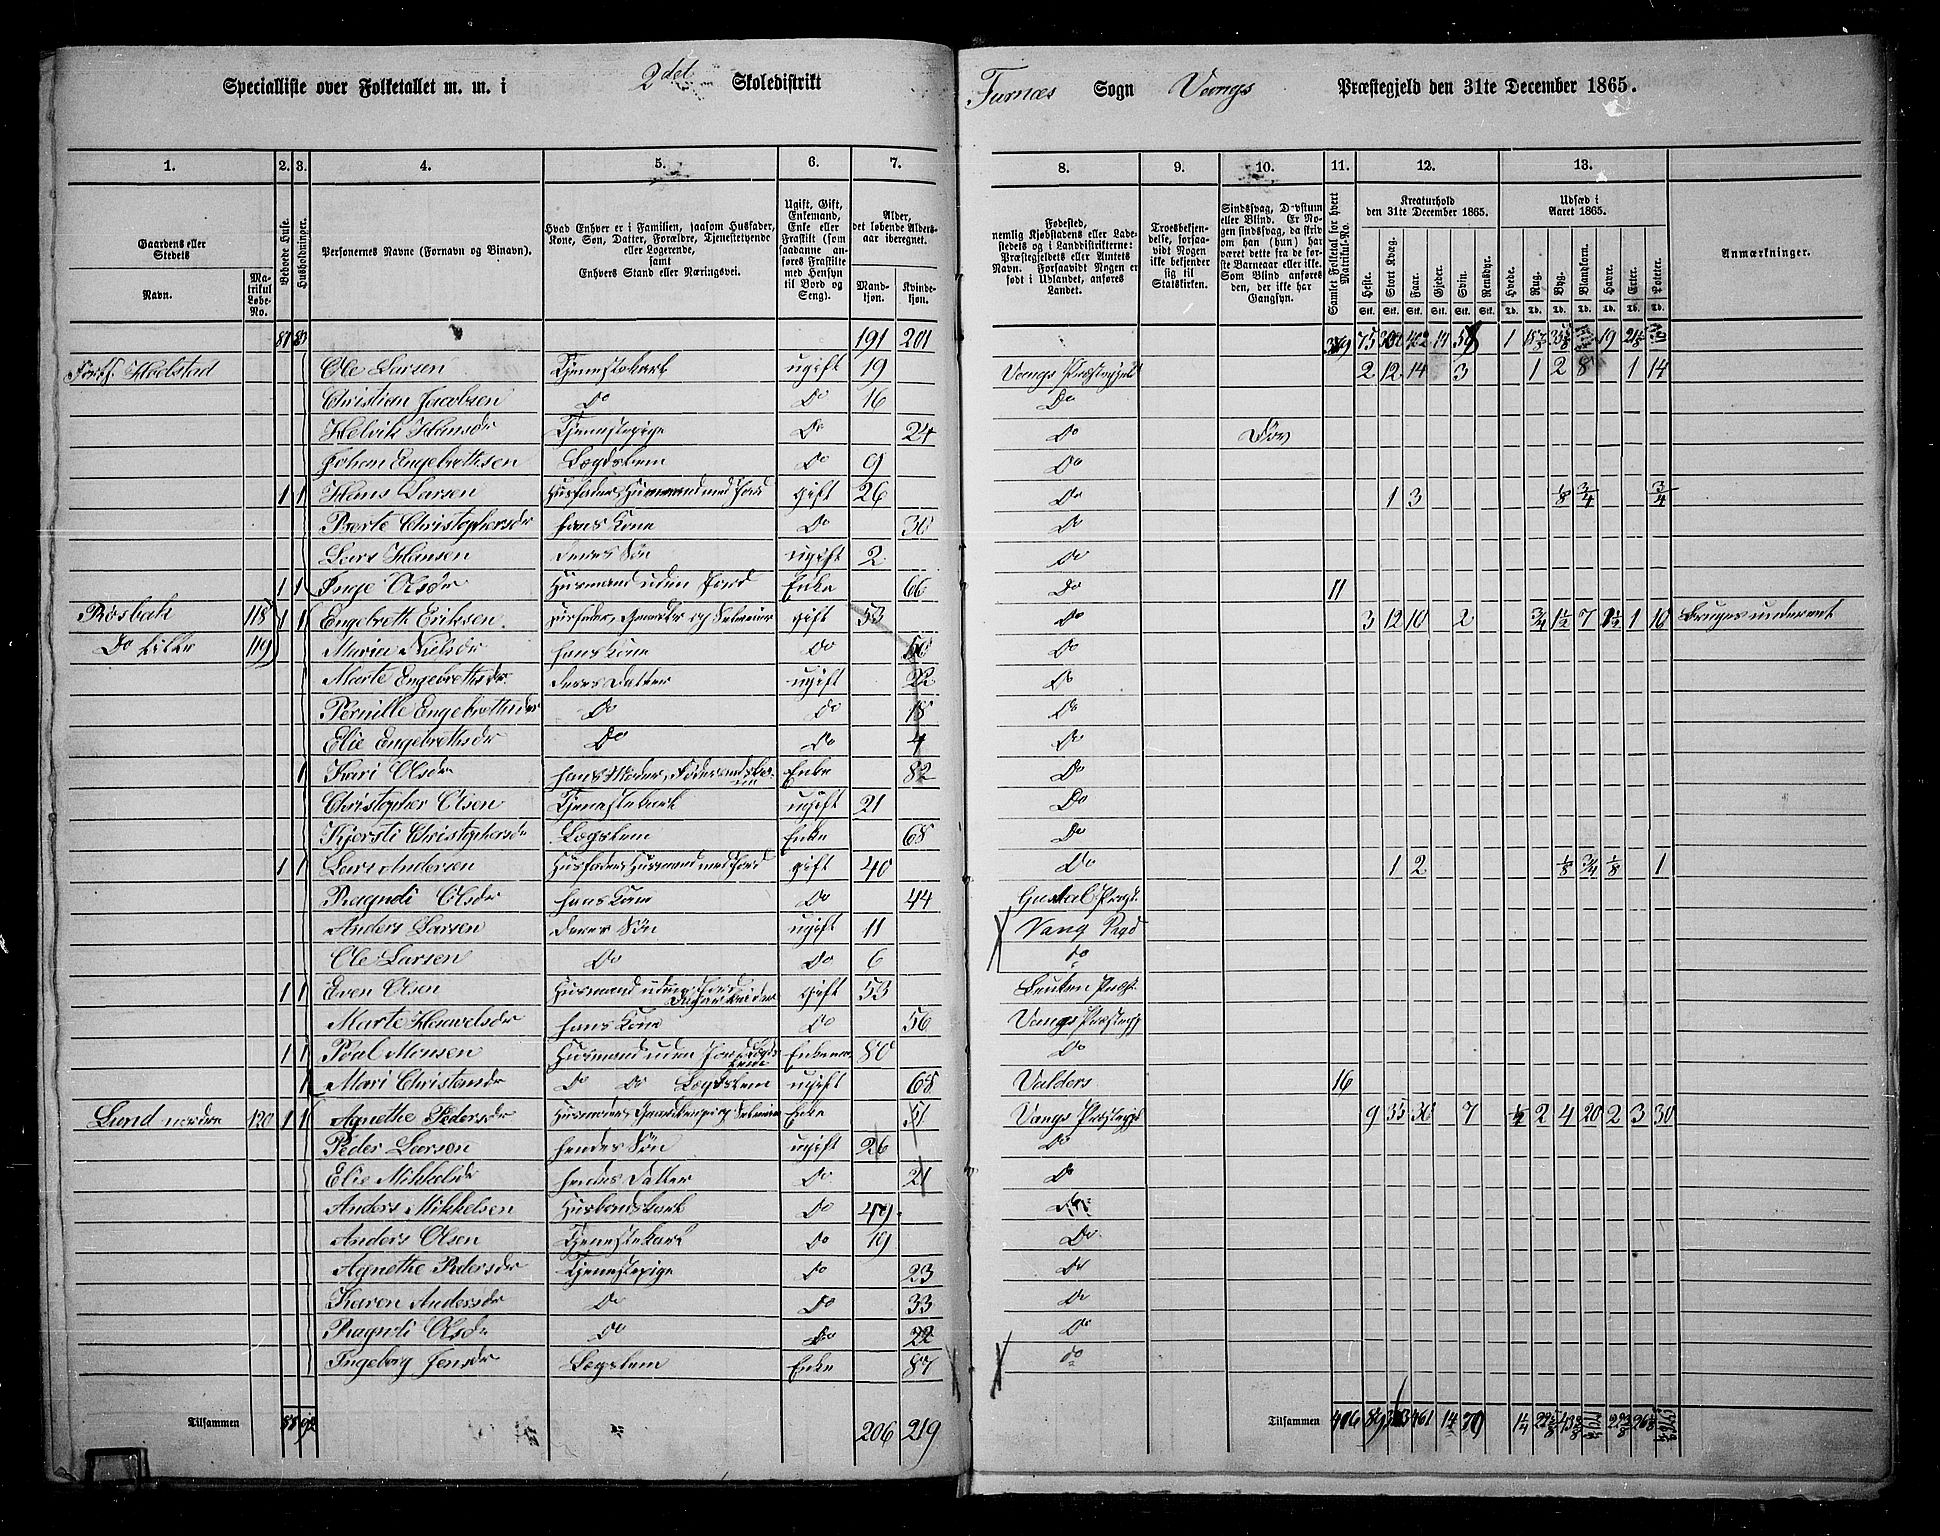 Specialliste over Folketallet m. m. i 2det Skoledistrikt Furnæs Sogn Vangs Præstegjeld den 31te December 1865.
1. 2. 3. 4. 5. 6. 7. 8. 9. 10. 11. 12. 13.
Gaardens eller Stedets Navn. Matrikul Løbe-No.
Beboede Huse. Husholdninger.
Personernes Navne (Fornavn og Binavn).
Hvad Enhver er i Familien, saasom Husfader, Kone, Søn, Datter, Forældre, Tjenestetyende eller Logerende, samt Enhvers Stand eller Næringsvei.
Ugift, Gift, Enkemand, Enke eller Fraskilt (som saadanne anføres Fraskilte med Hensyn til Bord og Seng).
Alder, det løbende Alders-aar iberegnet. Mandkjøn. Kvindekjøn.
Fødested, nemlig Kjøbstadens eller Ladestedets og i Landdistrikterne: Præstegjeldets eller Amtets Navn. Forsaavidt Nogen er født i Udlandet, anføres Landet.
Troesbekjendelse, forsaavidt Nogen ikke bekjender sig til Statskirken.
Sindssvag, Døvstum eller Blind. Er Nogen sindssvag, da skriv om han (hun) har været dette fra de første Barneaar eller ikke. Som Blind anføres den, der ikke har Gangsyn.
Samlet Folketal for hvert Matrikul-No.
Kreaturhold den 31te December 1865. Heste. Stort Kvæg. Faar. Gjeder. Svin. Rensdyr.
Udsæd i Aaret 1865. Hvede. Rug. Byg. Blandkorn. Havre. Erter. Poteter.
Anmærkninger.
191 201
Ole Larsen Tjenestekarl ugift 19 Vangs Præstegjeld 2 12 14 3 1 2 8 1 14
Christian Jacobsen Do Do 16 Do
Helvik Hansdr Tjenestepige Do 24 Do Døv
Johan Engebrethsen Lægdslem Do 9 Do
1 1 Hans Larsen Husfader, Husmand med Jord gift 26 Do 1 3 1/8 3/4 3/4
Berte Christophersdr hans Kone Do 30 Do
Lars Hansen deres Søn ugift 2 Do
1 1 Inge Olsdr Husmand uden Jord Enke 66 Do 11
Rosbak 118 1 1 Engebreth Eriksen Husfader, Gaardbr og Selveier gift 53 Do 3 12 10 2 3/4 1 1/2 7 1 1/2 1 10 Bruges underet
Do lille 119 Marin Nielsdr hans Kone Do 50 Do
Marte Engebrethsdr deres Datter ugift 22 Do
Pernille Engebrethsdr Do Do 18 Do
Elie Engebrethsdr Do Do 4 Do
1 Kari Olsdr hans Moder, Enke 82 Do
Christopher Olsen Tjenestekarl ugift 21 Do
Kjersti Christophersdr Lægslem Enke 68 Do
1 1 Lars Andersen Husfader Husmand med Jord gift 40 Do 1 2 1/8 3/4 1/8 1
Ragndi Olsdr hans Kone Do 44
Anders Larsen deres Søn ugift 11 Vang Pregd
Ole Larsen Do Do 6 do
1 1 Even Olsen Husmand uden Jord Dagarbeider gift 53 Præst
Marte Hauvelsdr hans Kone Do 56 Vangs Præstegj
1 1 Poul Monsen Husmand uden Jord Lægdslem Enkem. 80 Do
1 Mari Christensdr Do Do Lægdslem ugift 68 Valders 16
Lund nordre 120 1 1 Agnethe Pedersdr Husmoder, Enke 51 Vangs Præstegjd 9 35 30 7 1/2 2 4 20 2 3 30
Peder Larsen hendes Søn ugift 26 Do
Elie Mikkelsdr hendes Datter Do 21 Do
Anders Mikkelsen Husbondskarl Do 49 Do
Anders Olsen Tjenestekarl Do 19 Do
Agnethe Pedersdr Tjenestepige Do 23 Do
Karen Andersdr Do Do 33 Do
Ragndi Olsdr Do Do 22 Do
Ingeborg Jensdr Lægslem Enke 87 do
Tilsammen 88 92 206 219 Tilsammen 406